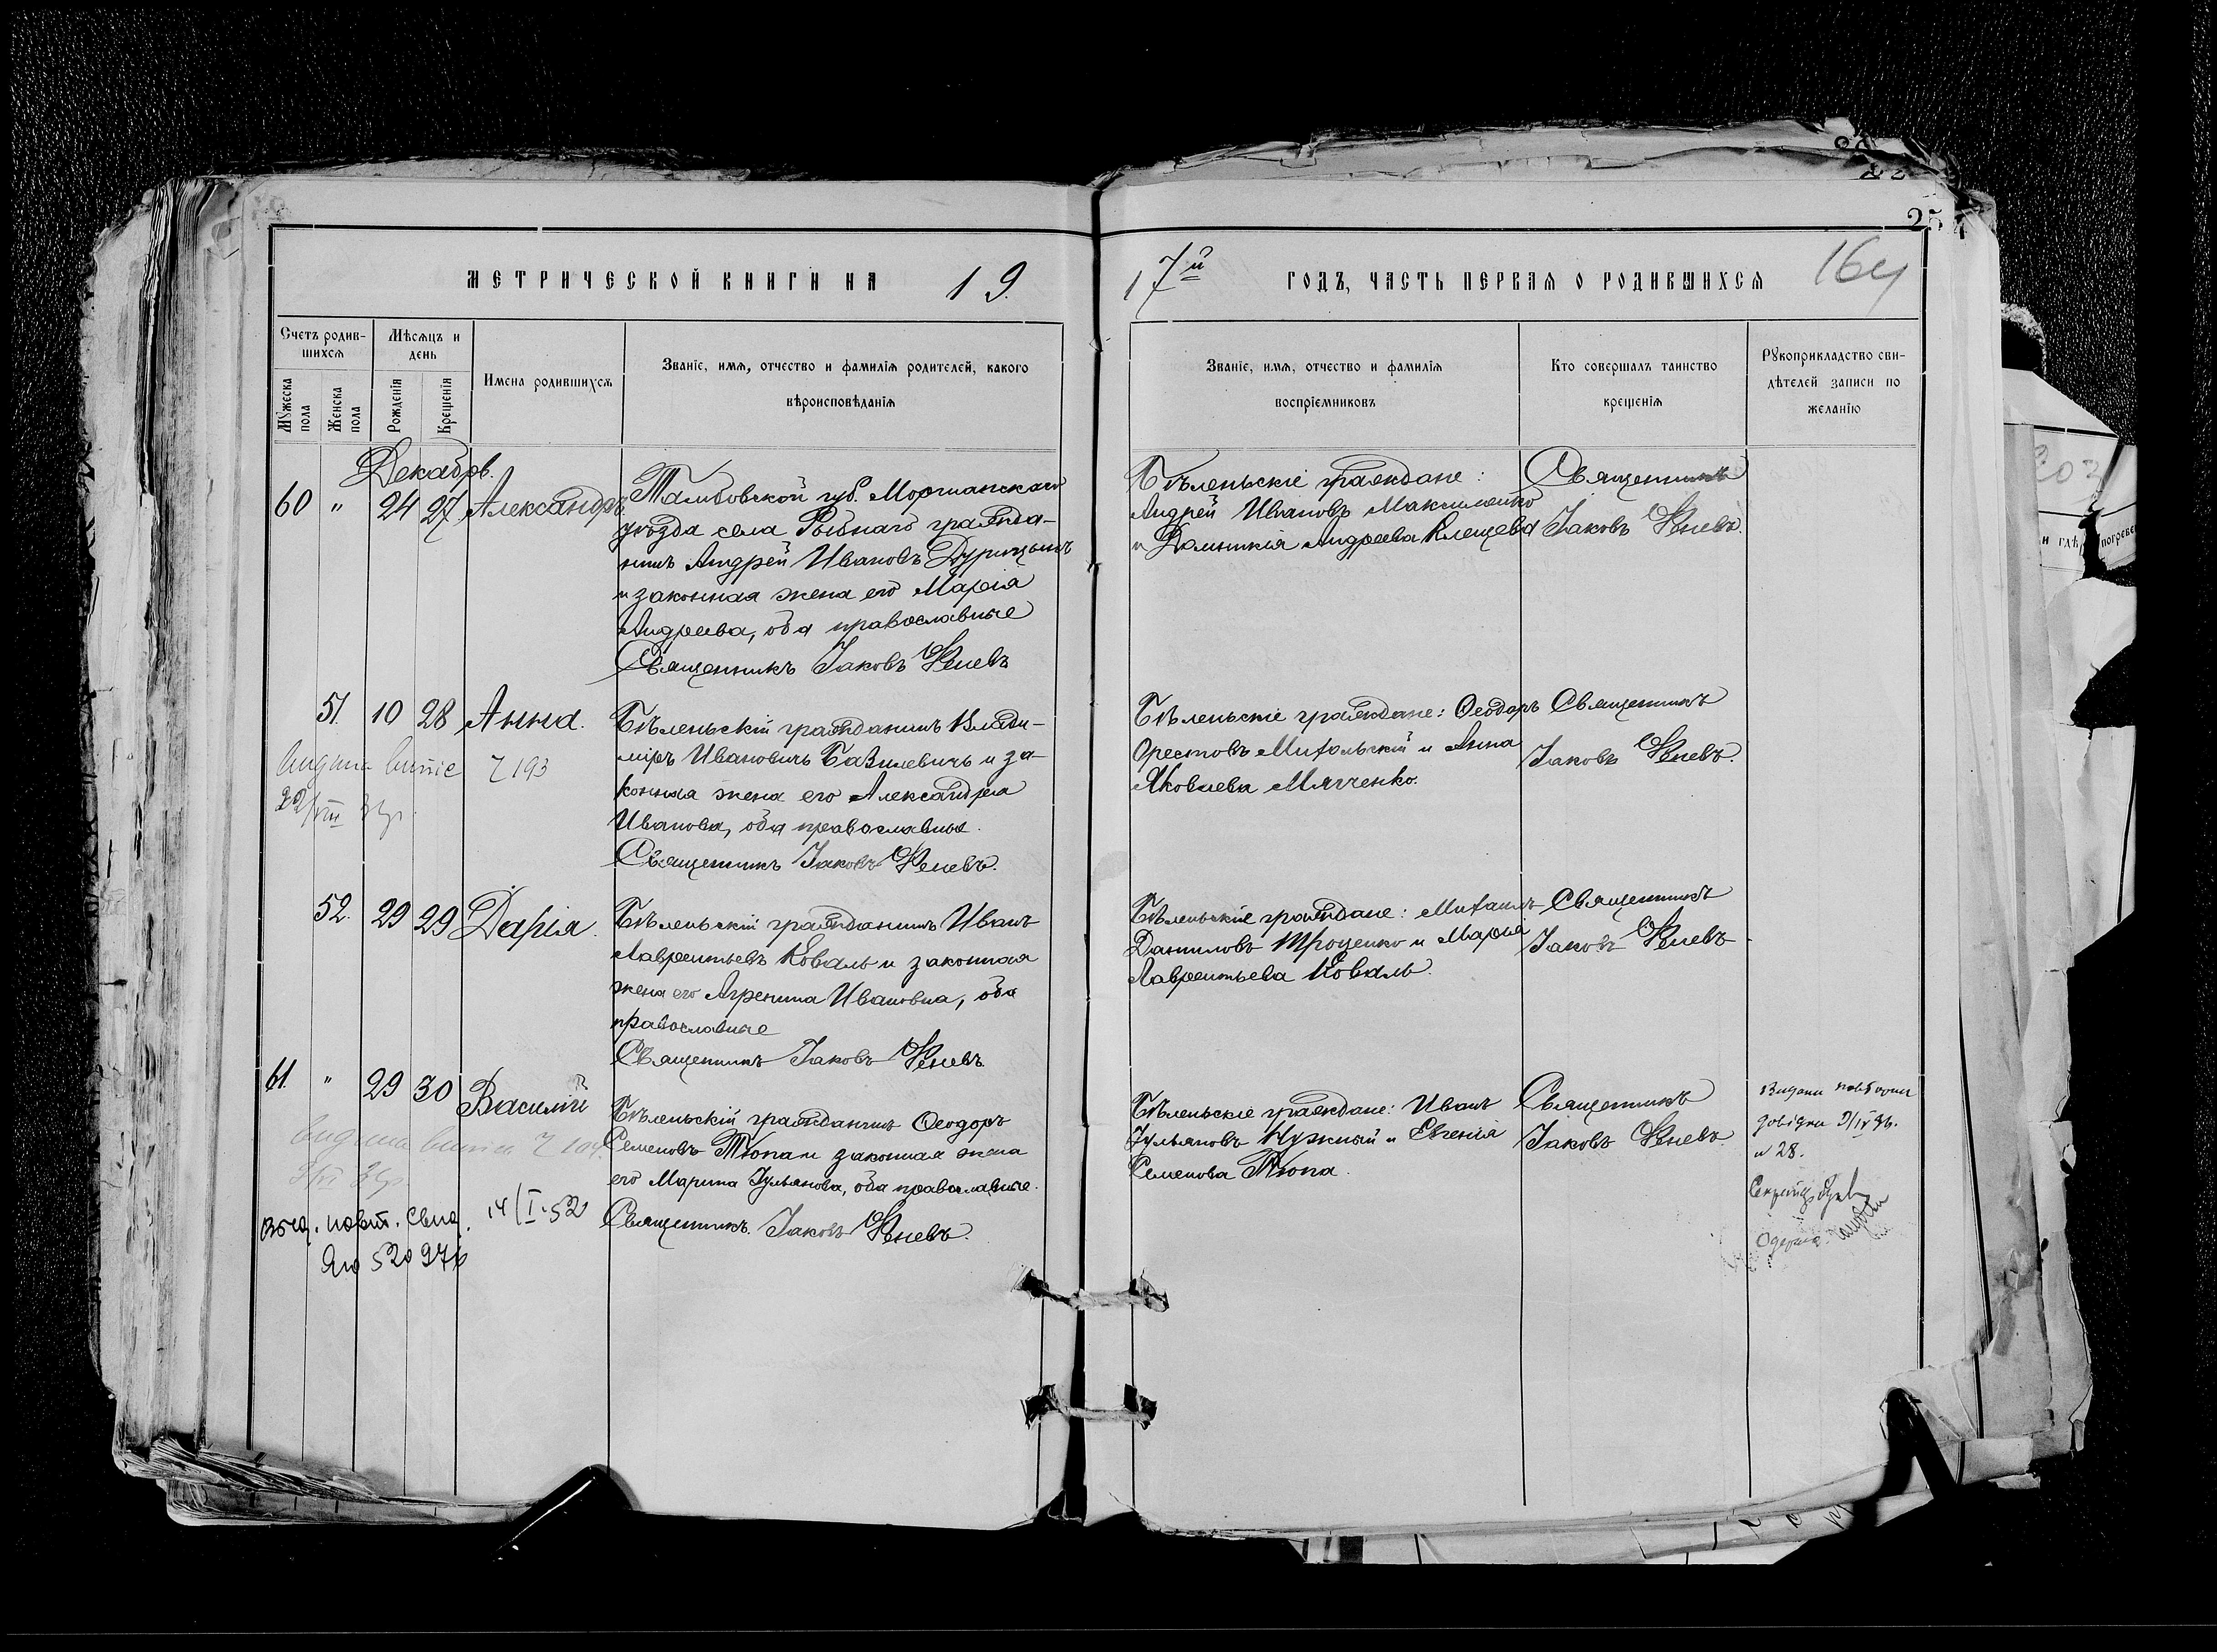 МЕТРИЧЕСКОЙ КНИГИ НА 19
17й ГОДЪ, ЧАСТЬ ПЕРВАЯ О РОДИВШИХСЯ
Счетъ родив-
шихся
Мужеска пола
Женска пола
Мѣсяцъ и
день
Рожденія
Крещенія
Имена родившихся
Званіе, имя, отчество и фамилія родителей, какого
вѣроисповѣданія
Званіе, имя, отчество и фамилія
воспріемниковъ
Кто совершалъ таинство
крещенія
Рукоприкладство сви-
дѣтелей записи по
желанію
Декабрь.
60 " 24 27 Александръ
Тамбовской губ. Моршанскаго
уѣзда села Рыбнаго гражда-
нинъ Андрей Ивановъ
и законная жена его Марія
Андреева, оба православные
Священникъ Іаковъ
Бѣленьскіе граждане:
Андрей Ивановъ Максименко
и Домникія Андреева Клещева
Священникъ
Іаковъ
51. 10 28 Анна.
Бѣленьскій гражданинъ Влади-
міръ Ивановичъ Базилевичъ и за-
конная жена его Александра
Иванова, оба православные.
Священникъ Іаковъ
Бѣленьскіе граждане: Ѳеодоръ
Орестовъ Михольскій и Анна
Яковлева Мягченко.
Священникъ
Іаковъ
52. 29 29 Дарія.
Бѣленьскій гражданинъ Иванъ
Лаврентьевъ Коваль и законная
жена его Агрепина Ивановна, оба
православные
Священникъ Іаковъ
Бѣленьскіе граждане: Михаилъ
Даниловъ Троценко и Марія
Лаврентьева Коваль.
Священникъ
Іаковъ
61. " 29 30 Василій
Бѣленьскій гражданинъ Ѳеодоръ
Семеновъ Тюпа и законная жена
его Марина Іульянова, оба православные.
Священникъ Іаковъ
Бѣленьскіе граждане: Иванъ
Іульяновъ Нужный и Евгенія
Семенова Тюпа.
Священникъ
Іаковъ
14/I-52
520976
№ 28.